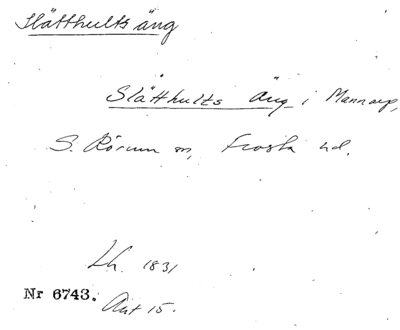 Slätthults äng
Slätthults äng i Mannarp,
S. Rörum sn, Frosta hd.
Lh. 1831
Nr 6743.
Akt 15.